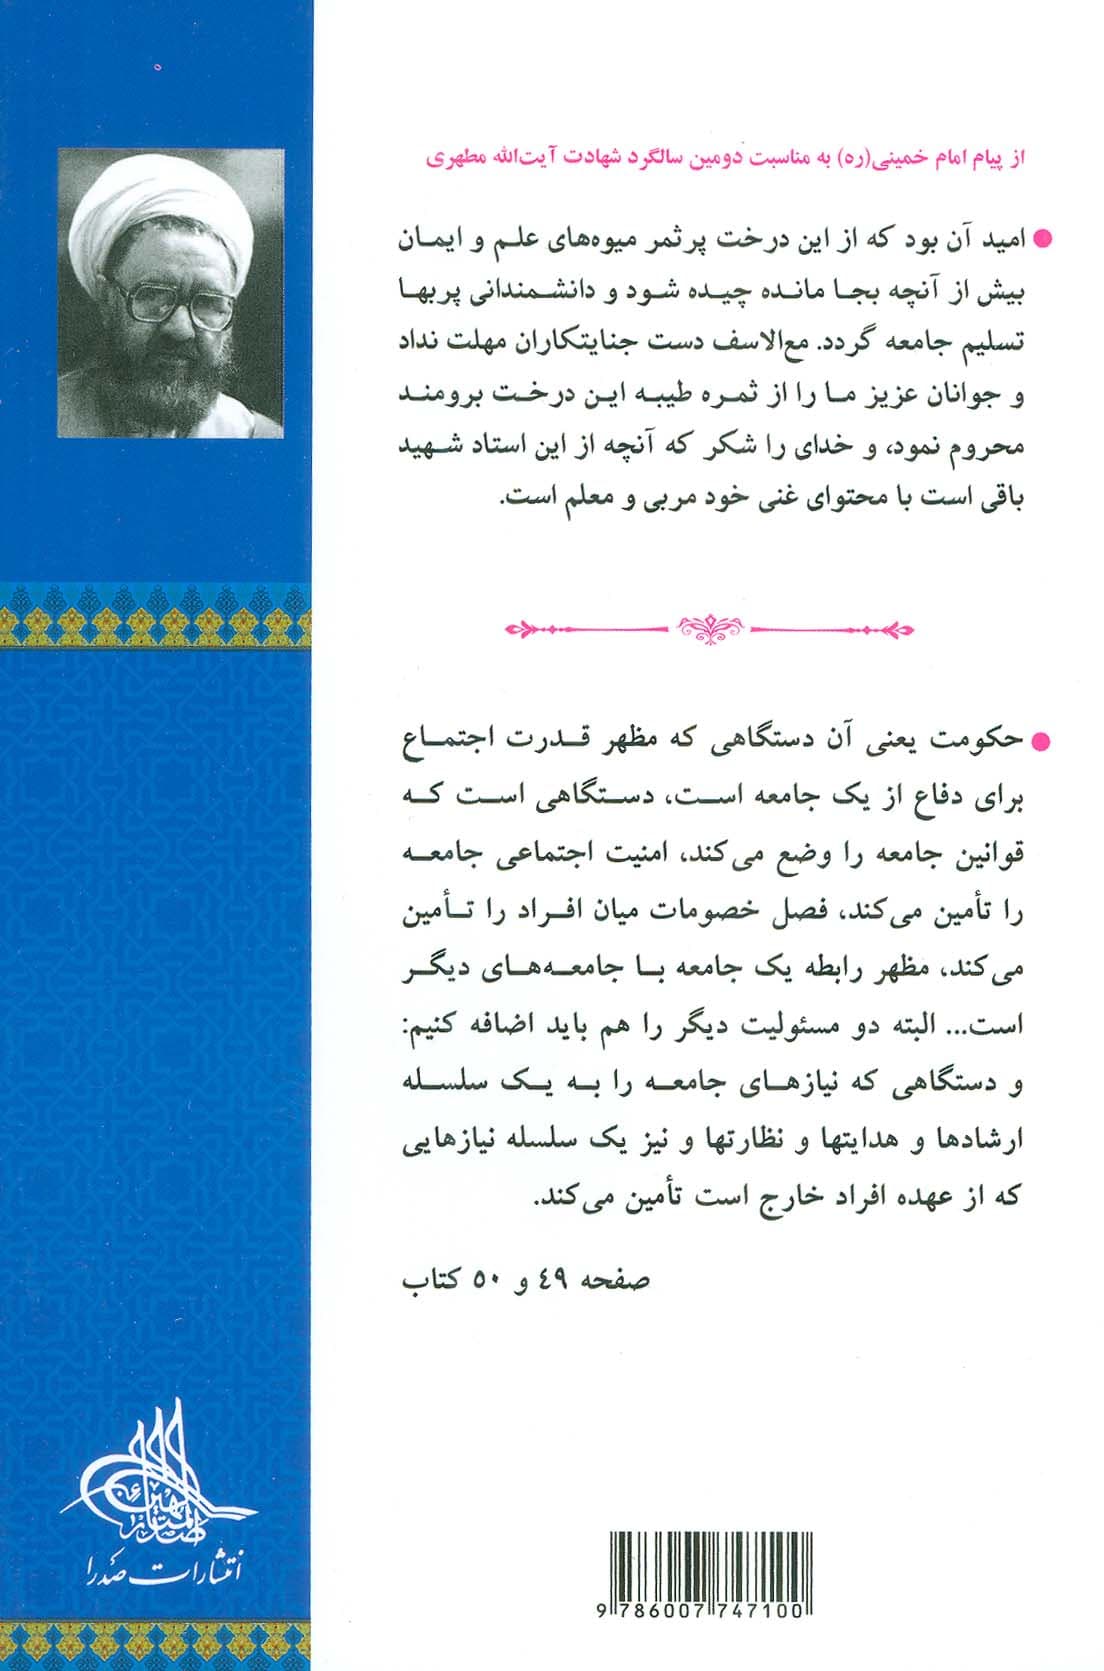 از پیام امام خمینی(ره) به مناسبت دومین سالگرد شهادت آیت‌الله مطهری
● امید آن بود که از این درخت پرثمر میوه‌های علم و ایمان
بیش از آنچه بجا مانده چیده شود و دانشمندانی پربها
تسلیم جامعه گردد. مع‌الاسف دست جنایتکاران مهلت نداد
و جوانان عزیز ما را از ثمره طیبه این درخت برومند
محروم نمود، و خدای را شکر که آنچه از این استاد شهید
باقی است با محتوای غنی خود مربی و معلم است.
● حکومت یعنی آن دستگاهی که مظهر قدرت اجتماع
برای دفاع از یک جامعه است، دستگاهی است که
قوانین جامعه را وضع می‌کند، امنیت اجتماعی جامعه
را تأمین می‌کند، فصل خصومات میان افراد را تأمین
می‌کند، مظهر رابطه یک جامعه با جامعه‌های دیگر
است... البته دو مسئولیت دیگر را هم باید اضافه کنیم:
و دستگاهی که نیازهای جامعه را به یک سلسله
ارشادها و هدایتها و نظارتها و نیز یک سلسله نیازهایی
که از عهده افراد خارج است تأمین می‌کند.
صفحه ۴۹ و ۵۰ کتاب
انتشارات صدرا
9 786007 747100